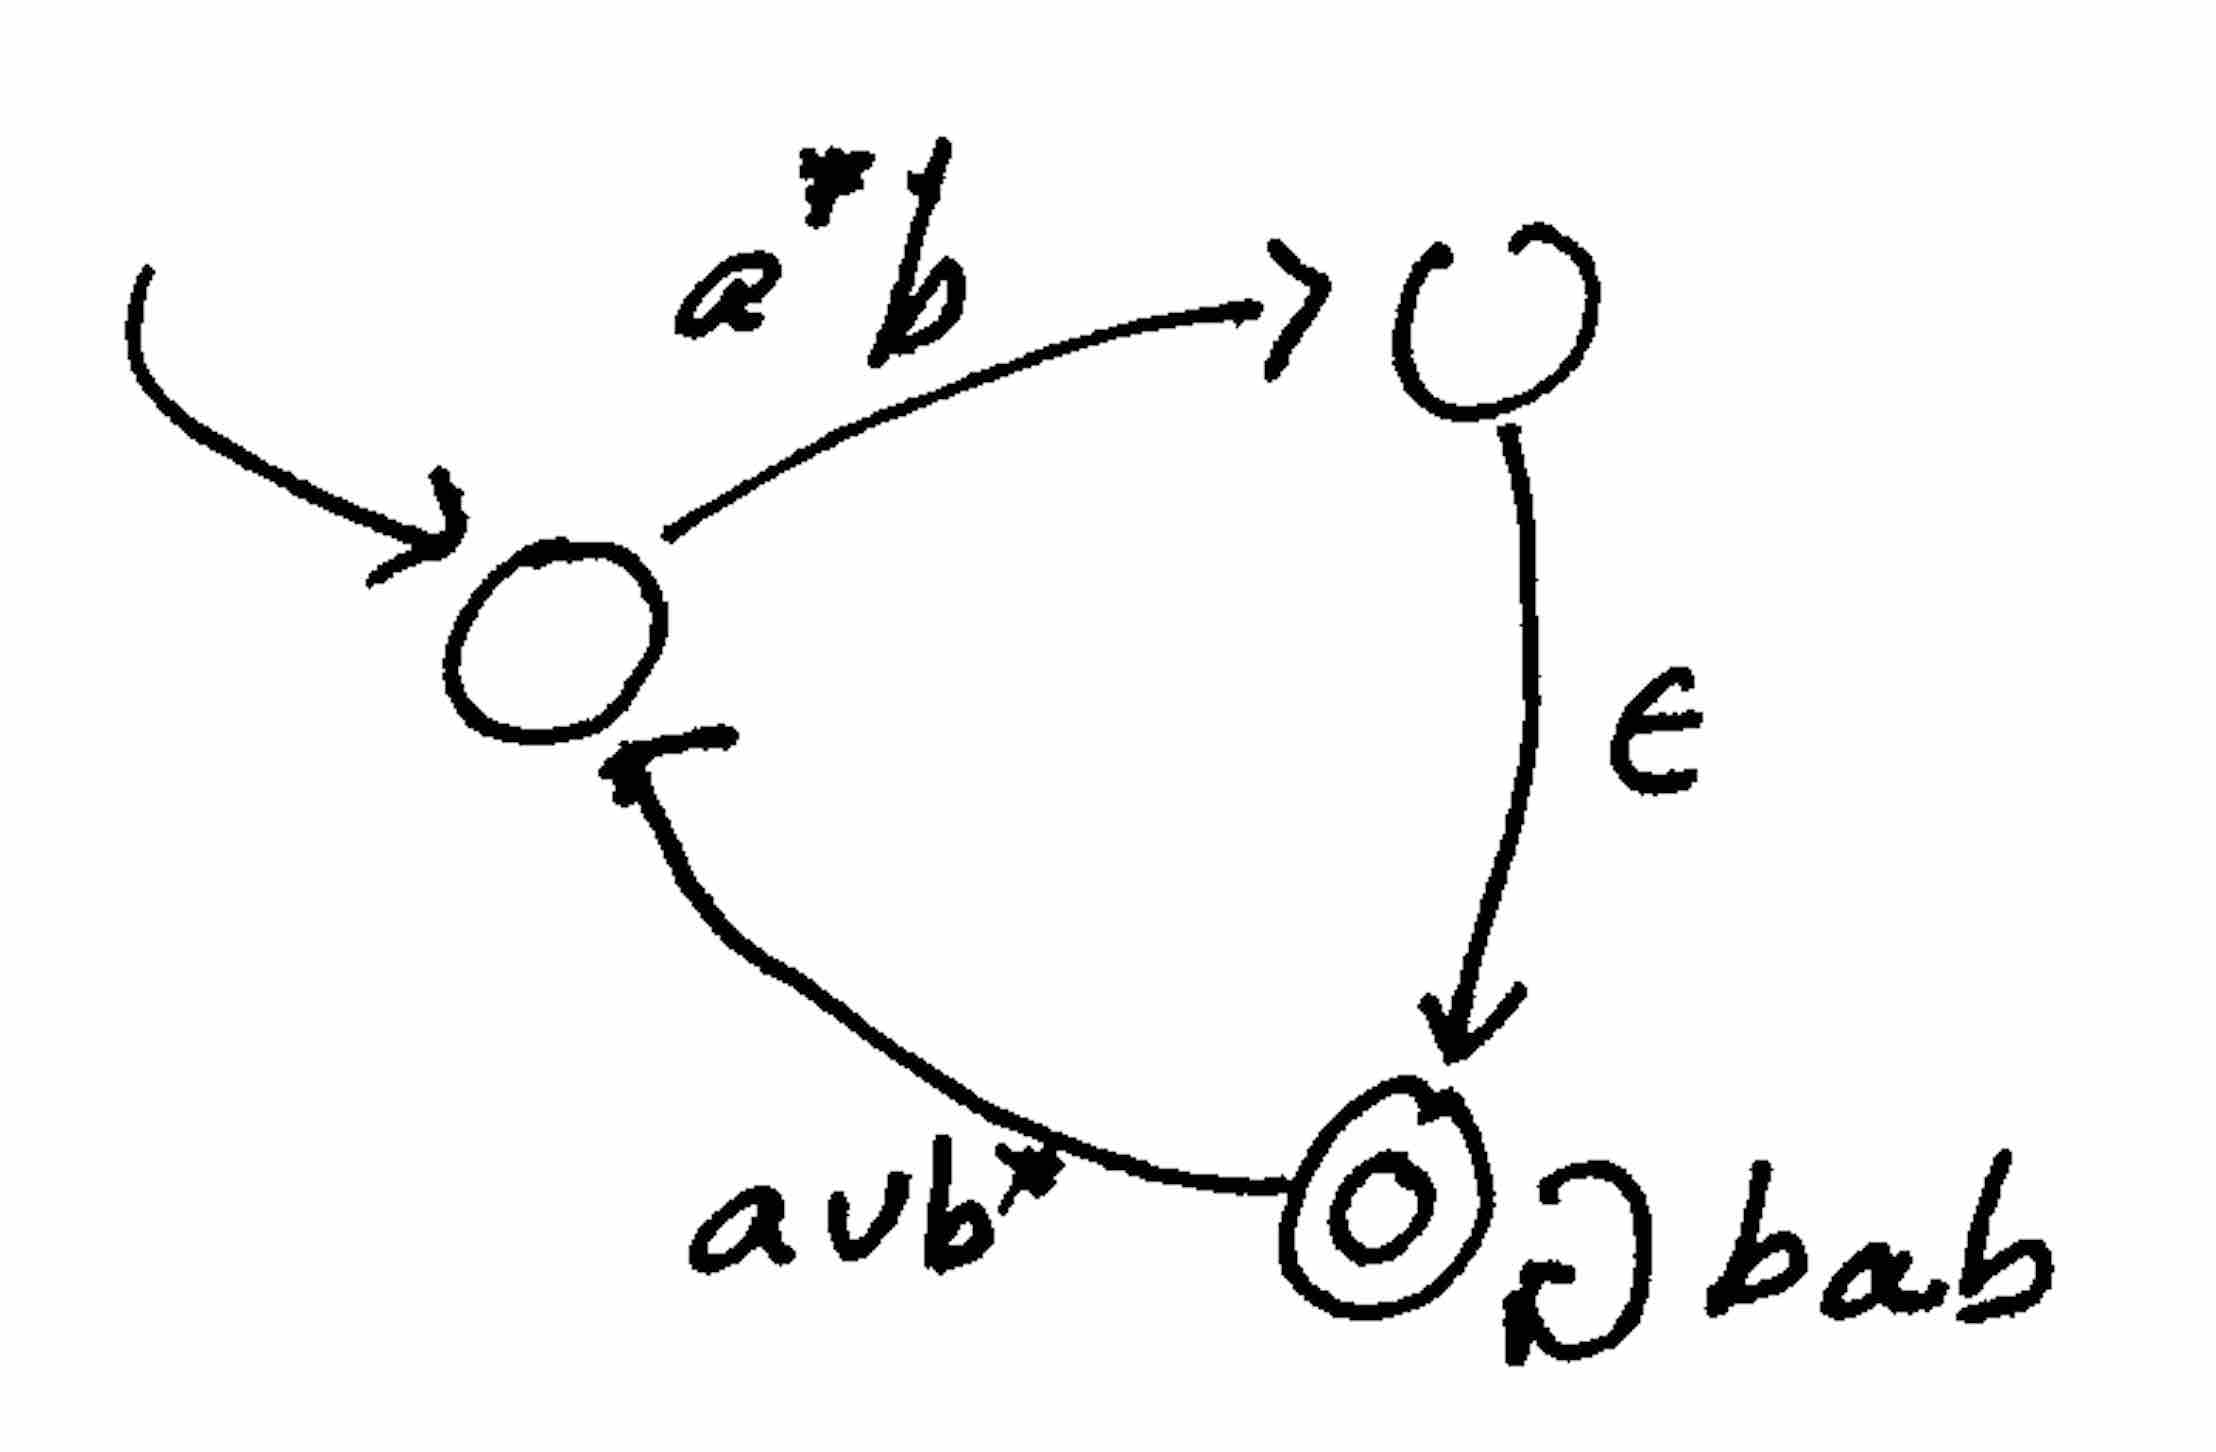 a*b
ϵ
a∪b*
bab